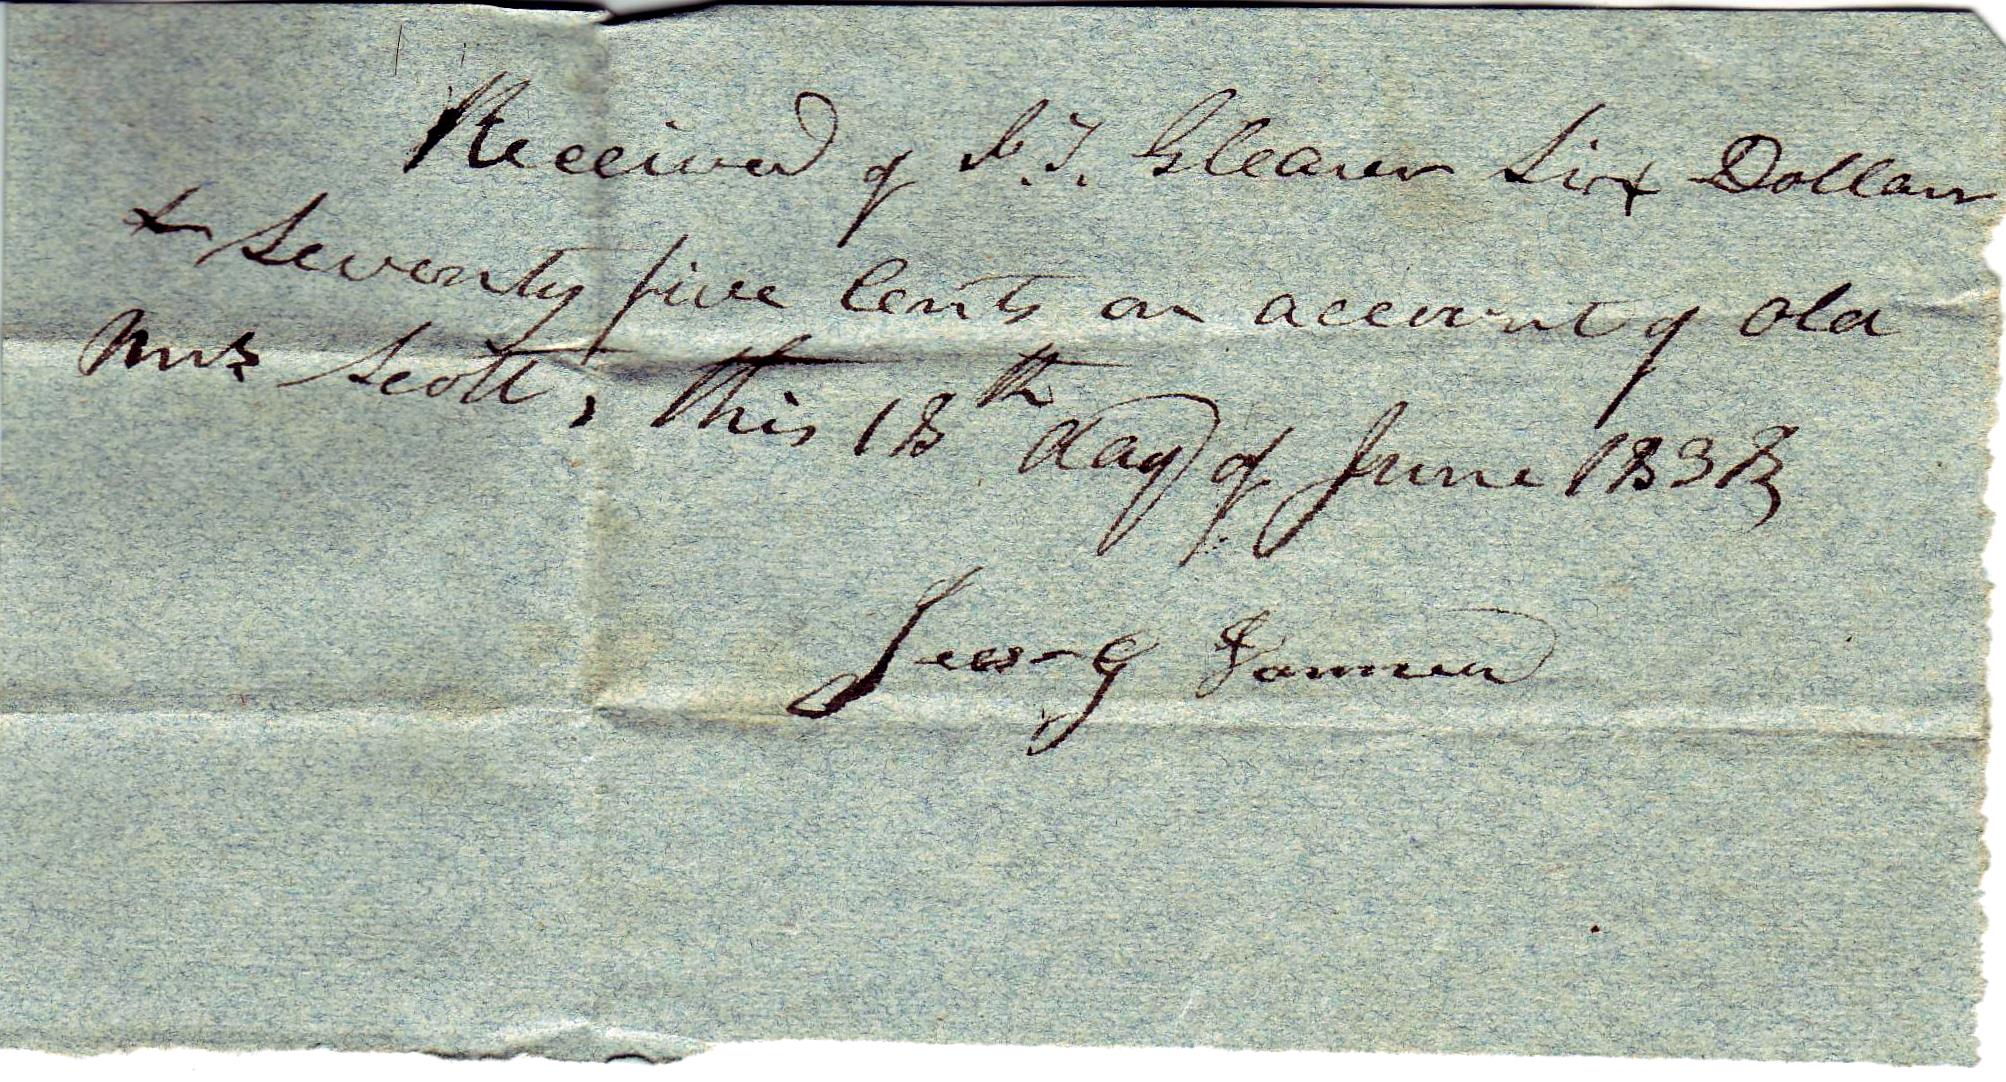 Received of S. T. Gleaver Six Dollars
& Seventy five Cents on account of old
Mrs Scott, this 18th day of June 1838
G